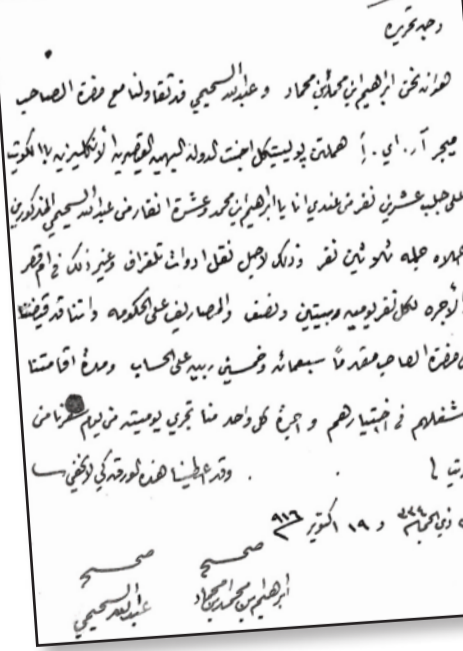 وجه تحريره
هو انه نحن ابراهيم ابن محمد ابن محماد و عبدالله السحيمي قد تقاولنا مع حضرة الصاحب
ميجر آر. اي. أ هملتن پوليتيكل اجنت الدولة البهيه القيصريه الانكليزيه بالكويت
على جلب عشرين نفر من عندي انا يا ابراهيم ابن محمد وعشرة انفار من عبدالله السحيمي المذكورين
اعلاه جمله ثلاثين نفر وذلك لاجل نقل ادوات تلغراف وغير ذلك في ام قصر
والأجره لكل نفر يوميه ربيتين ونصف والمصاريف على الحكومه واننا قد قبضنا
من حضرة الصاحب مقدماً سبعمائه وخمسين ربيه على الحساب ومدة اقامتنا
شغلهم في اختيارهم و اجرة كل واحد منا تجري يوميته من يوم سفرنا من
وقد اعطينا هذه الورقه كي لا يخفى
ذي الحجه ٣٣٤ و ١٩ اكتوبر ٩١٦
صحيح صحيح
ابرهيم بن محمد بن محماد عبدالله السحيمي